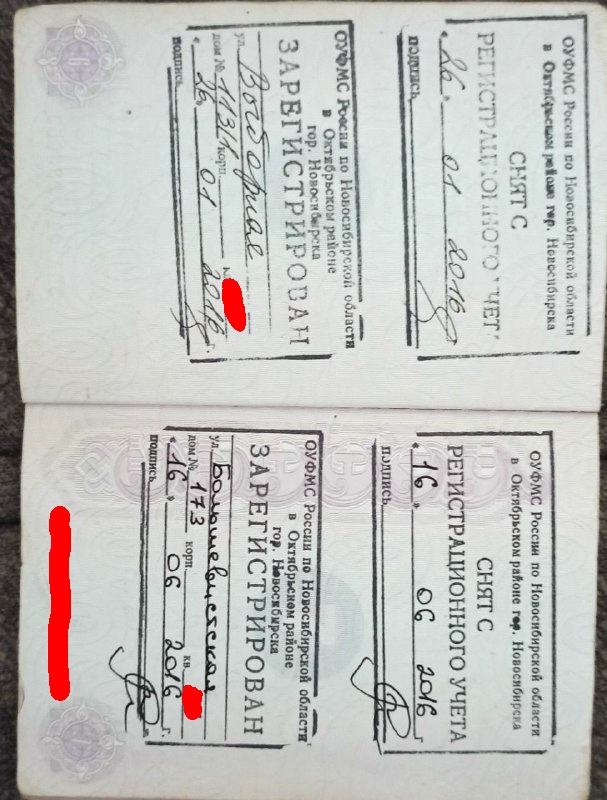 ОУФМС России по Новосибирской области
в Октябрьском районе гор. Новосибирска
СНЯТ С
РЕГИСТРАЦИОННОГО УЧЕТА
«26» 01 2016
подпись
ОУФМС России по Новосибирской области
в Октябрьском районе
гор. Новосибирска
ЗАРЕГИСТРИРОВАН
ул. Выборная
дом № 113/1 корп. кв.
«26» 01 2016 г.
подпись
ОУФМС России по Новосибирской области
в Октябрьском районе гор. Новосибирска
СНЯТ С
РЕГИСТРАЦИОННОГО УЧЕТА
«16» 06 2016 г.
подпись
ОУФМС России по Новосибирской области
в Октябрьском районе
гор. Новосибирска
ЗАРЕГИСТРИРОВАН
ул. Большевистская
дом № 173 корп. кв.
«16» 06 2016 г.
подпись